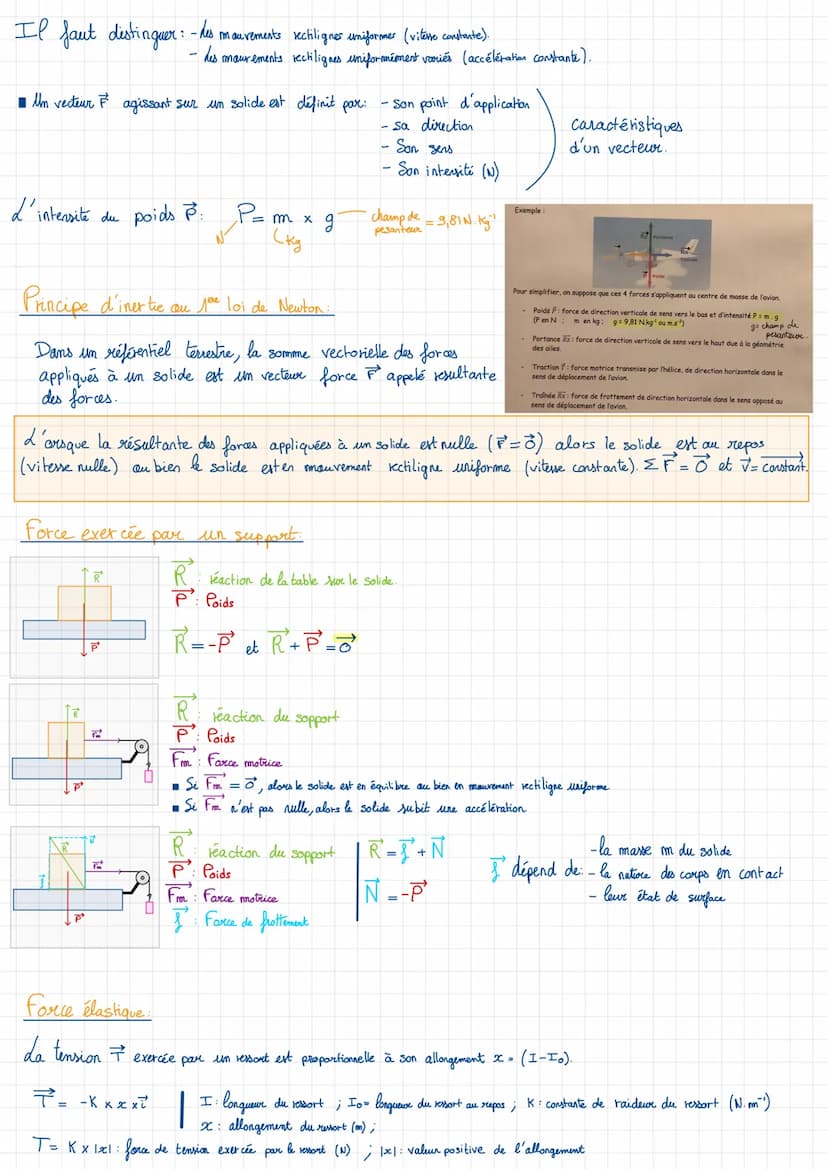 Il faut distinguer : - des mouvements rectilignes uniformes (vitesse constante).
- des mouvements rectilignes uniformément variés (accélération constante).
▪ Un vecteur F agissant sur un solide est définit par : - son point d'application
- sa direction
- Son sens
- Son intensité (N)
caractéristiques
d'un vecteur.
L'intensité du poids P : P = m x g
N
Kg
champ de
pesanteur = 9,81 N.kg⁻¹
Exemple :
Pour simplifier, on suppose que ces 4 forces s'appliquent au centre de masse de l'avion.
- Poids P : force de direction verticale de sens vers le bas et d'intensité P = m . g
(P en N ; m en kg ; g = 9,81 N.kg⁻¹ ou m.s⁻²)
g = champ de
pesanteur.
- Portance : force de direction verticale de sens vers le haut due à la géométrie
des ailes.
- Traction T : force motrice transmise par l'hélice, de direction horizontale dans le
sens de déplacement de l'avion.
- Traînée : force de frottement de direction horizontale dans le sens opposé au
sens de déplacement de l'avion.
Principe d'inertie ou 1ère loi de Newton :
Dans un référentiel terrestre, la somme vectorielle des forces
appliqués à un solide est un vecteur force F appelé resultante
des forces.
L'orsque la résultante des forces appliquées à un solide est nulle (F = 0) alors le solide est au repos
(vitesse nulle) ou bien le solide est en mouvement rectiligne uniforme (vitesse constante). Σ F = 0 et V = constant.
Force exercée par un support :
R
P
R : réaction de la table sur le solide.
P : Poids
R = -P et R + P = 0
R
Fm
P
R : réaction du support
P : Poids
Fm : Force motrice
▪ Si Fm = 0, alors le solide est en équilibre ou bien en mouvement rectiligne uniforme
▪ Si Fm n'est pas nulle, alors le solide subit une accélération
R
Fm
f
P
R : réaction du support
P : Poids
Fm : Force motrice
f : Force de frottement
R = f + N
N = -P
f dépend de : - la masse m du solide
- la nature des corps en contact
- leur état de surface
Force élastique :
La tension T exercée par un ressort est proportionnelle à son allongement x = (I-I₀).
T = -K x x x i
I : longueur du ressort ; I₀ = longueur du ressort au repos ; K : constante de raideur du ressort (N.m⁻¹)
x : allongement du ressort (m) ;
T = K x |x| : force de tension exercée par le ressort (N) ; |x| : valeur positive de l'allongement